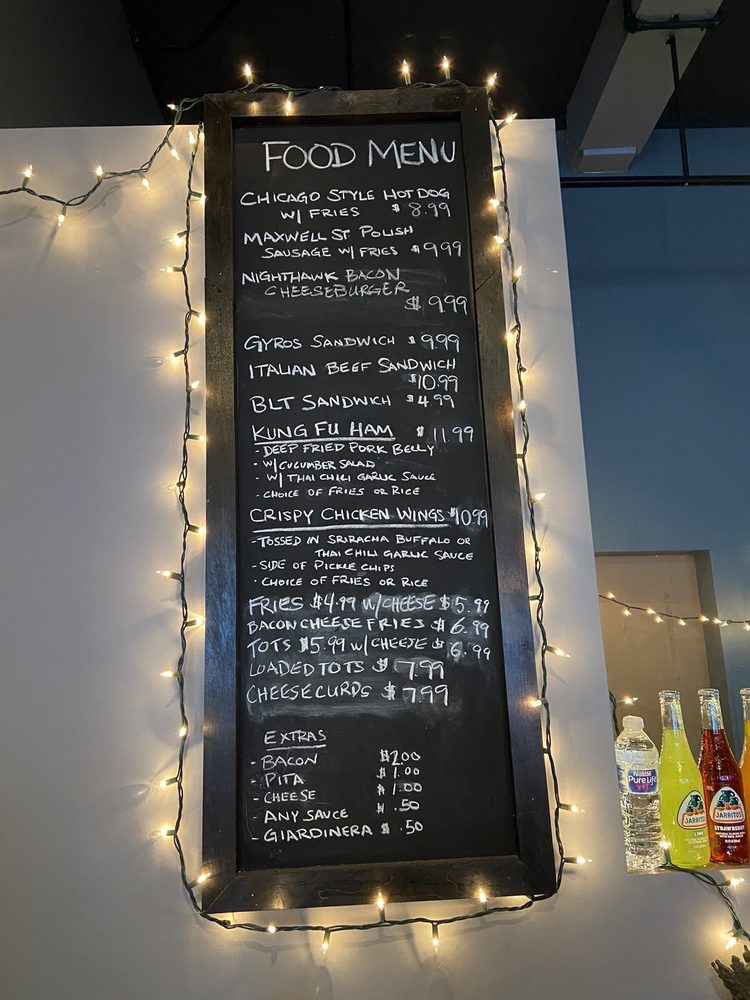 FOOD MENU
CHICAGO STYLE HOT DOG
W/ FRIES $ 8.99
MAXWELL ST POLISH
SAUSAGE W/ FRIES $9.99
NIGHTHAWK BACON
CHEESEBURGER
$ 9.99
GYROS SANDWICH $9.99
ITALIAN BEEF SANDWICH
$10.99
BLT SANDWICH $4.99
KUNG FU HAM $11.99
- DEEP FRIED PORK BELLY
- W/ CUCUMBER SALAD
- W/ THAI CHILI GARLIC SAUCE
- CHOICE OF FRIES OR RICE
CRISPY CHICKEN WINGS $10.99
- TOSSED IN SRIRACHA BUFFALO OR
THAI CHILI GARLIC SAUCE
- SIDE OF PICKLE CHIPS
- CHOICE OF FRIES OR RICE
FRIES $4.99 W/CHEESE $5.99
BACON CHEESE FRIES $ 6.99
TOTS $5.99 W/ CHEESE $ 6.99
LOADED TOTS $ 7.99
CHEESE CURDS $ 7.99
EXTRAS
- BACON $2.00
- PITA $1.00
- CHEESE $1.00
- ANY SAUCE $ .50
- GIARDINERA $ .50
Nestle
Pure Life
JARRITOS
LIME
JARRITOS
STRAWBERRY